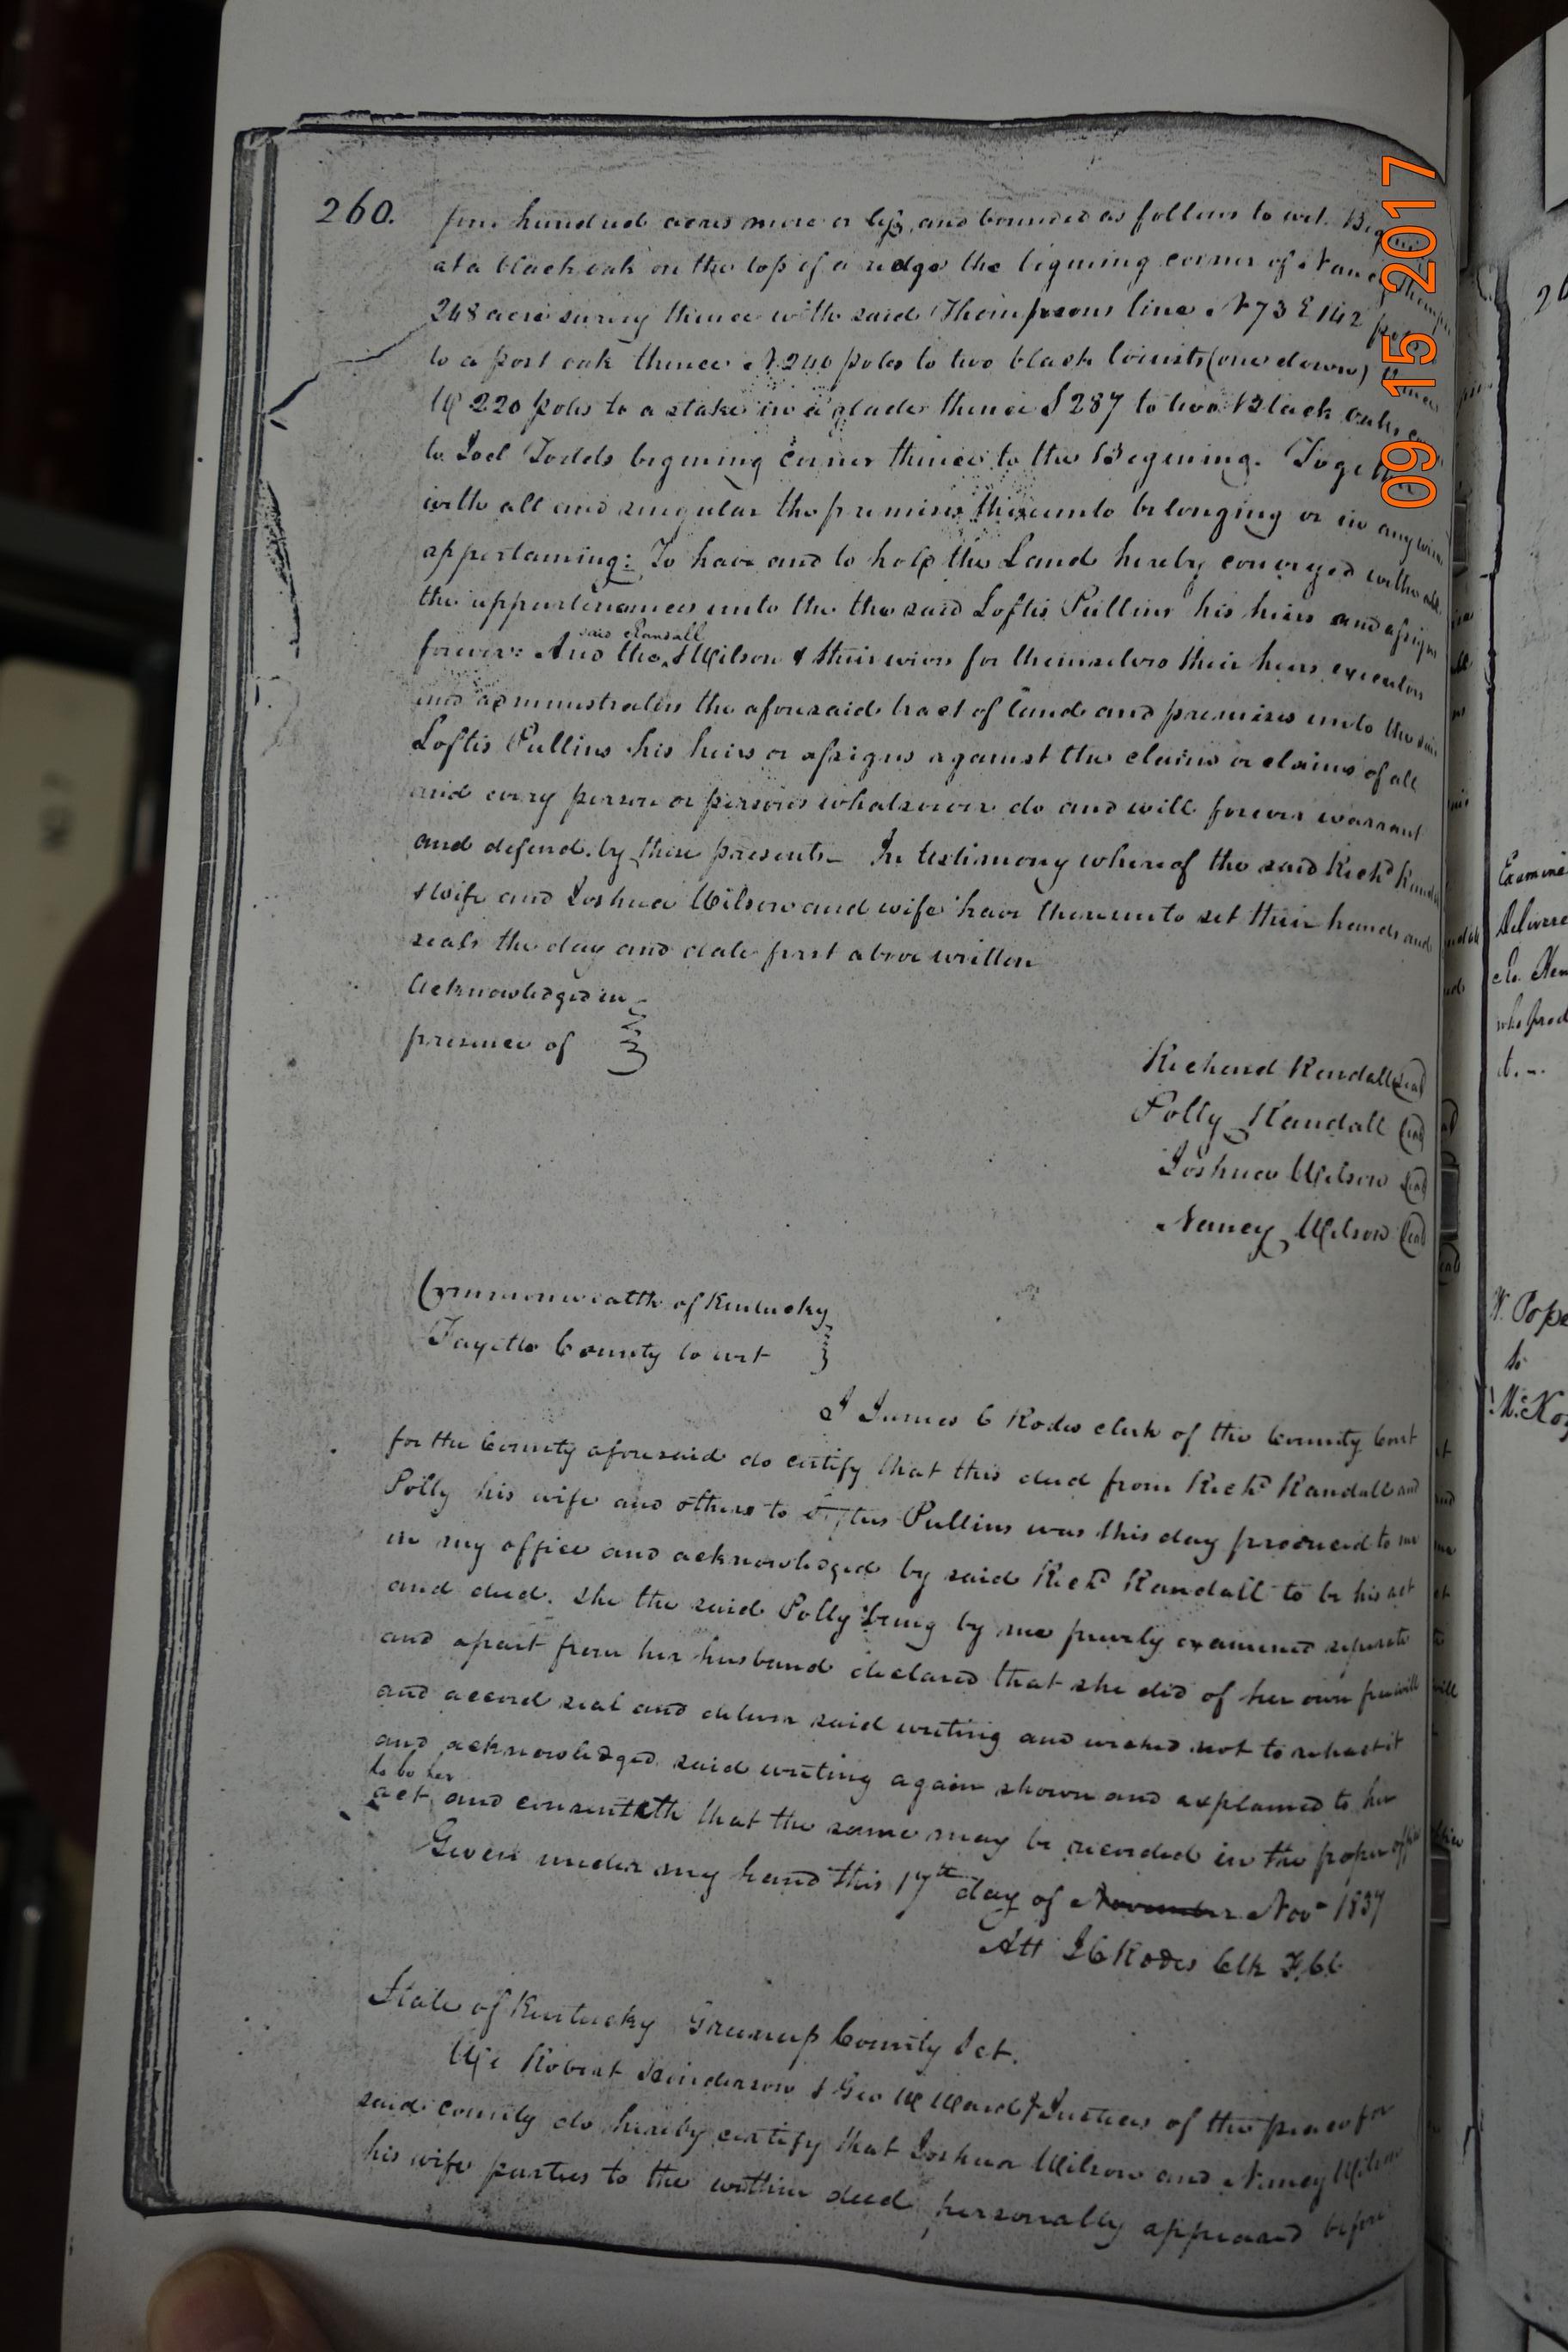 260.
four hundred acres more or less, and bounded as follows to wit. Begin
at a black oak on the top of a ridge the begining corner of Nancy
248 acre survey thence with said Thompsons line N 73 E 142 poles
to a post oak thence N 240 poles to two black locusts (one down) thence
W 220 poles to a stake in a glade thence S 287 to two Black oaks
to Joel Todds begining corner thence to the Begining. Together
with all and singular the premises thereunto belonging or in any wise
appertaining: To have and to hold the Land hereby conveyed with all
the appurtenances unto the the said Loftis Pullins his heirs and assigns
said Randall
forever: And the & Wilson & their wives for themselves their heirs executors
and administrators the aforesaid tract of land and premises unto the said
Loftis Pullins his heirs or assigns against the claim or claims of all
and every person or persons whatsoever do and will forever warrant
and defend by these presents — In testimony whereof the said Richd Randall
& wife and Joshua Wilson and wife have thereunto set their hands and
seals the day and date first above written
Acknowledged in
presence of
Richard Randall Seal
Polly Randall Seal
Joshua Wilson Seal
Nancy Wilson Seal
Commonwealth of Kentucky
Fayette County to wit
I James C Rodes clerk of the County Court
for the County aforesaid do certify that this deed from Richd Randall and
Polly his wife and others to Pullins was this day produced to me
in my office and acknowledged by said Richd Randall to be his act
and deed. She the said Polly being by me privily examined seperate
and apart from her husband declared that she did of her own free will
and accord seal and deliver said writing and wished not to retract it
and acknowledged said writing again shown and explained to her
to be her
act and consenteth that the same may be recorded in the proper office
Given under my hand this 17th day of November Nov 1837
Att J C Rodes Clk F.C.C.
State of Kentucky Greenup County Sct.
We Robert Henderson & Geo W Ward Justices of the peace for
said county do hereby certify that Joshua Wilson and Nancy Wilson
his wife parties to the within deed personally appeared before
09 15 2017
Examine
Delivere
who prod
Pope
to
McKoy